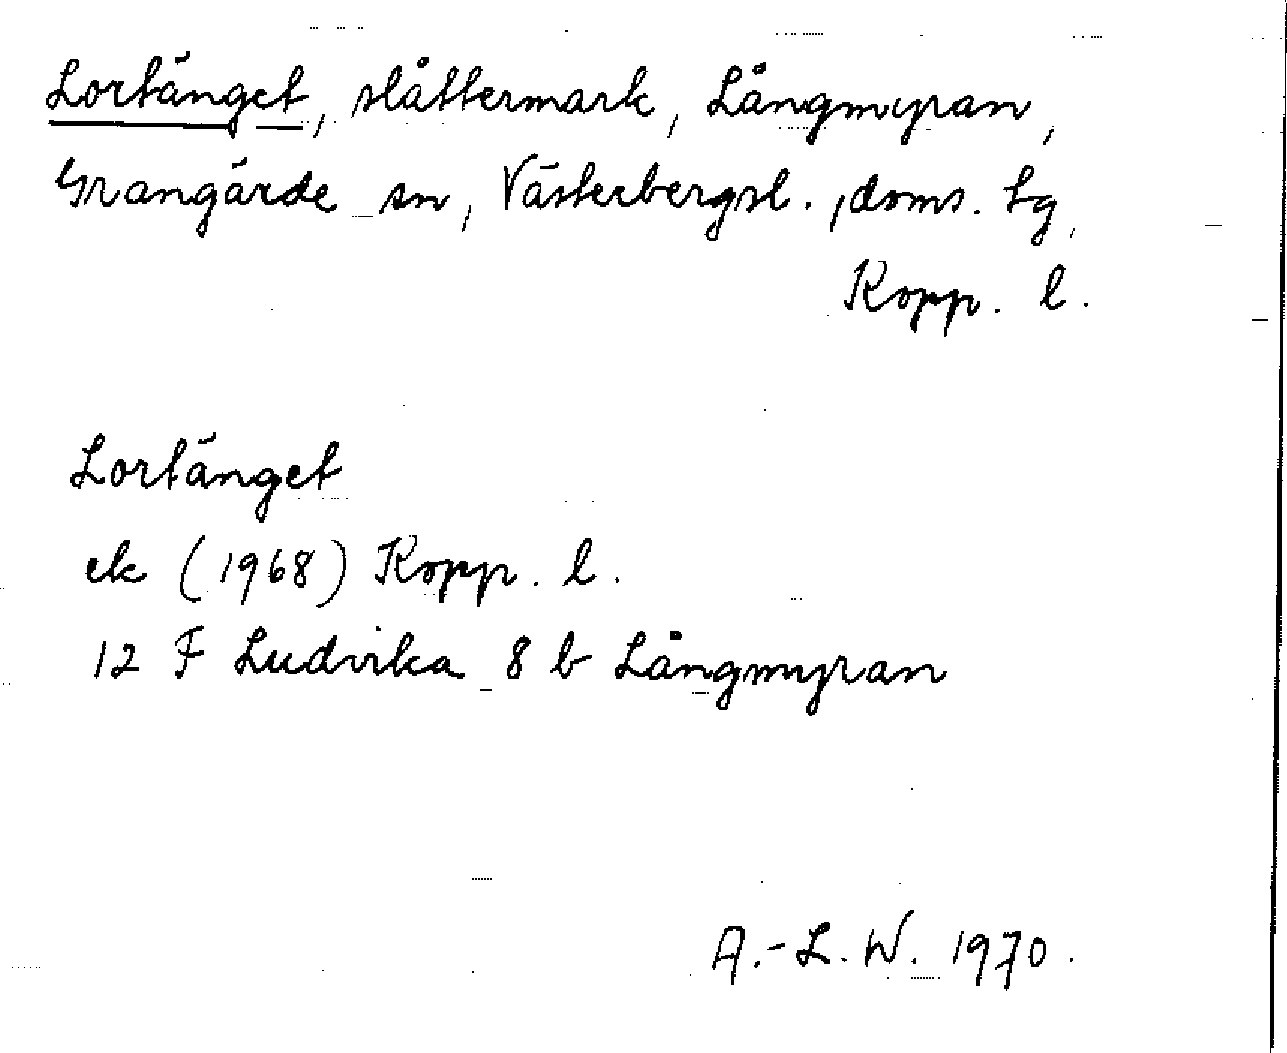 Lortänget, slåttermark, Långmyran,
Grangärde sn, Västerbergsl., doms. tg,
Kopp. l.
Lortänget
ek (1968) Kopp. l.
12 F Ludvika 8 b Långmyran
A.-L. W. 1970.